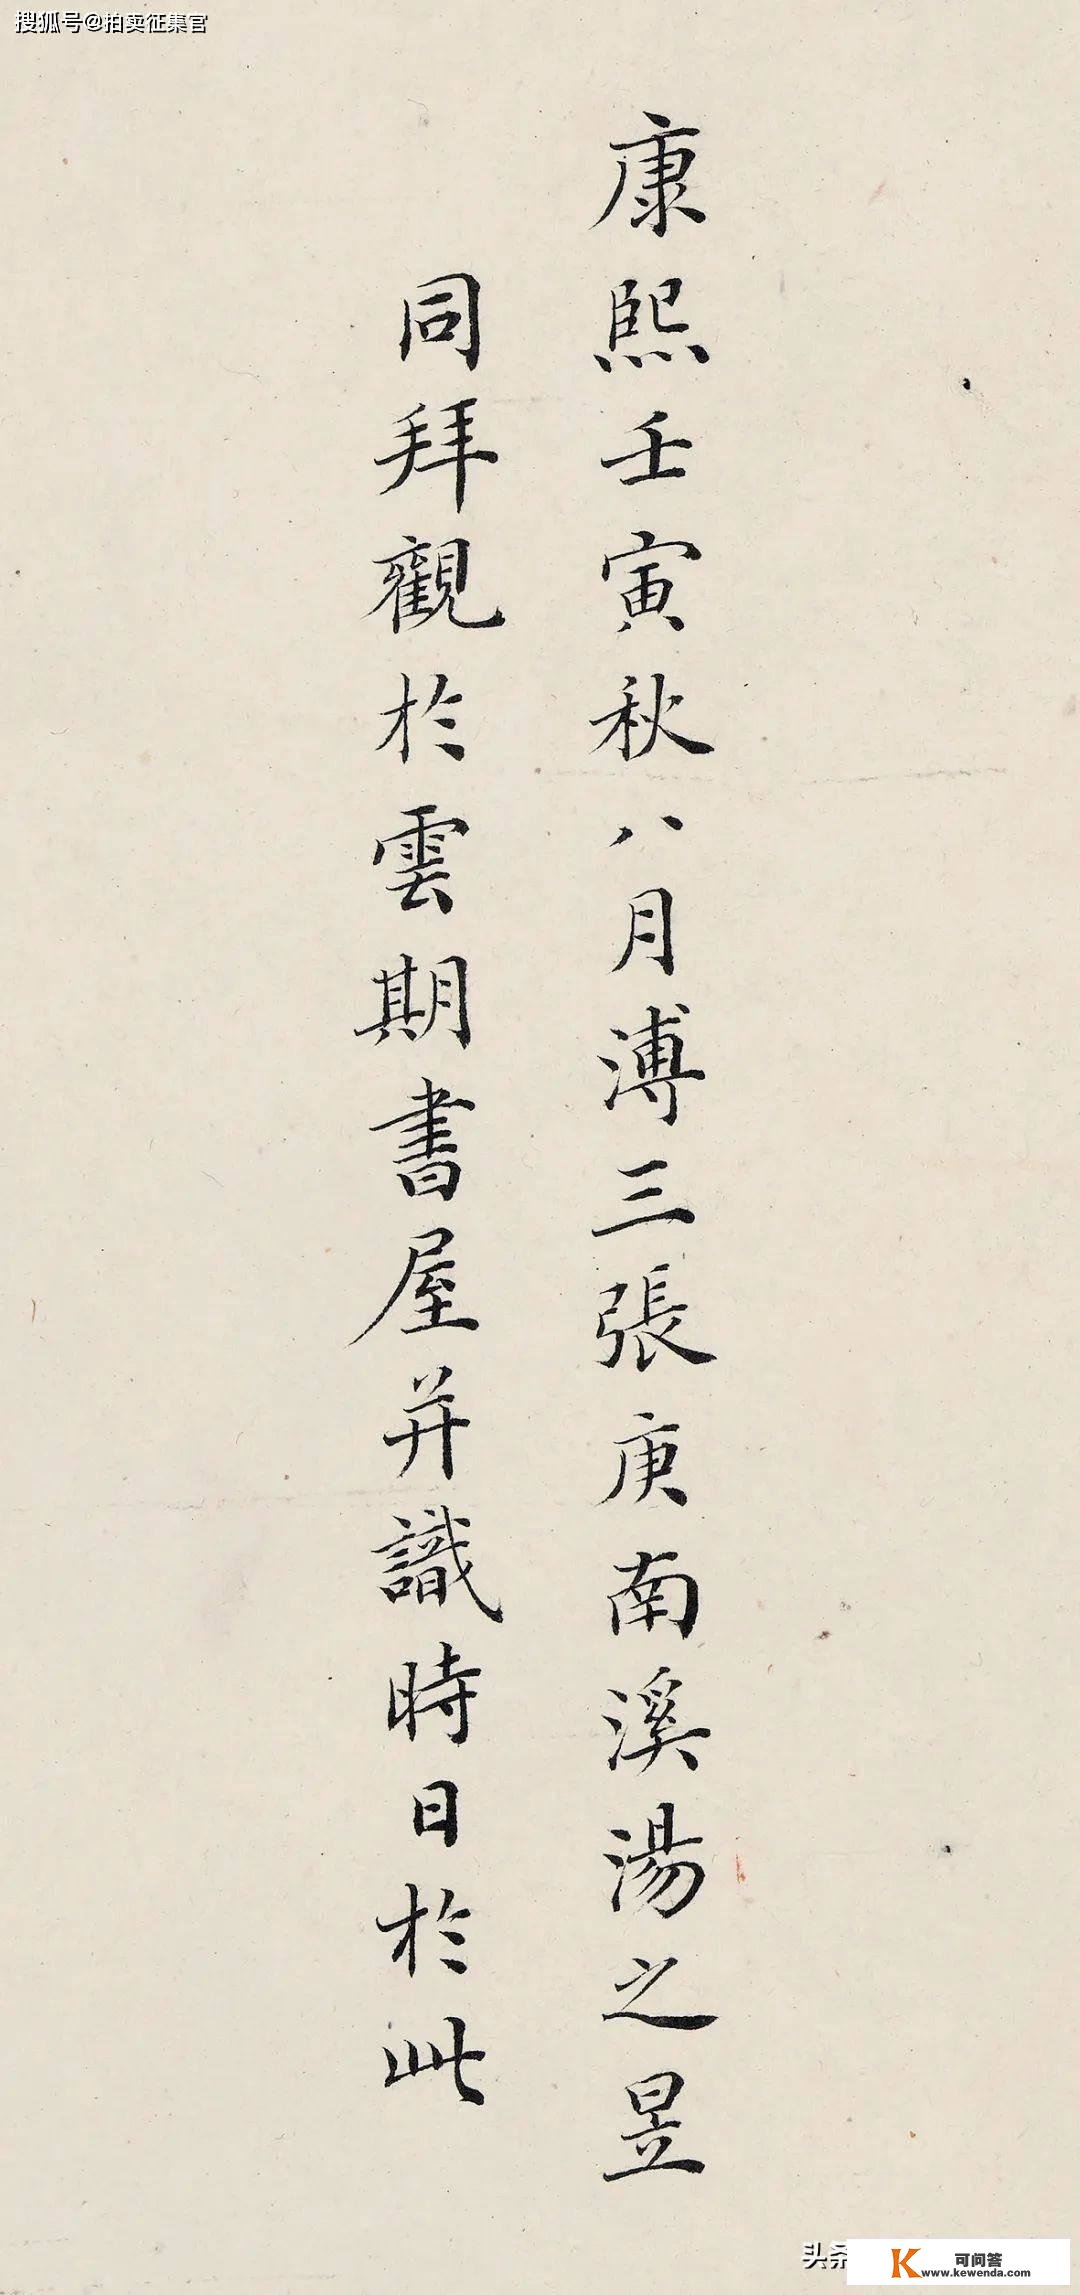 搜狐号@拍卖征集官
康熙壬寅秋八月溥三張庚南溪湯之昱
同拜觀於雲期書屋并識時日於此
头条
可问答
www.kewenda.com